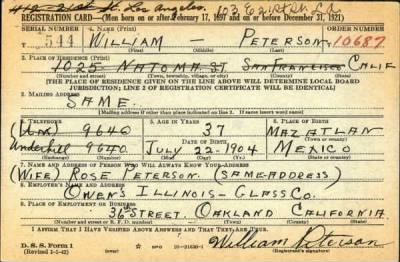 412 - 21st St. Los Angeles.
REGISTRATION CARD—(Men born on or after February 17, 1897 and on or before December 31, 1921)
SERIAL NUMBER 1. NAME (Print) ORDER NUMBER
544 WILLIAM — PETERSON 10687
(First) (Middle) (Last)
2. PLACE OF RESIDENCE (Print)
1025 NATOMA ST SAN FRANCISCO CALIF
(Number and street) (Town, township, village, or city) (County) (State)
(THE PLACE OF RESIDENCE GIVEN ON THE LINE ABOVE WILL DETERMINE LOCAL BOARD
JURISDICTION; LINE 2 OF REGISTRATION CERTIFICATE WILL BE IDENTICAL)
3. MAILING ADDRESS
SAME.
(Mailing address if other than place indicated on line 2. If same insert word same)
4. TELEPHONE 5. AGE IN YEARS 6. PLACE OF BIRTH
(UN) 9640 37 MAZATLAN
DATE OF BIRTH (Town or county)
Underhill 9640. JULY 22-1904 MEXICO
(Exchange) (Number) (Mo.) (Day) (Yr.) (State or country)
7. NAME AND ADDRESS OF PERSON WHO WILL ALWAYS KNOW YOUR ADDRESS
(WIFE) ROSE PETERSON. (SAME-ADDRESS)
8. EMPLOYER'S NAME AND ADDRESS
OWENS ILLINOIS-GLASS CO.
9. PLACE OF EMPLOYMENT OR BUSINESS
36th STREET. OAKLAND CALIFORNIA
(Number and street or R. F. D. number) (Town) (County) (State)
I AFFIRM THAT I HAVE VERIFIED ABOVE ANSWERS AND THAT THEY ARE TRUE.
D. S. S. Form 1
(Revised 1-1-42) GPO 16—21630-1 William Peterson
(Registrant's signature)